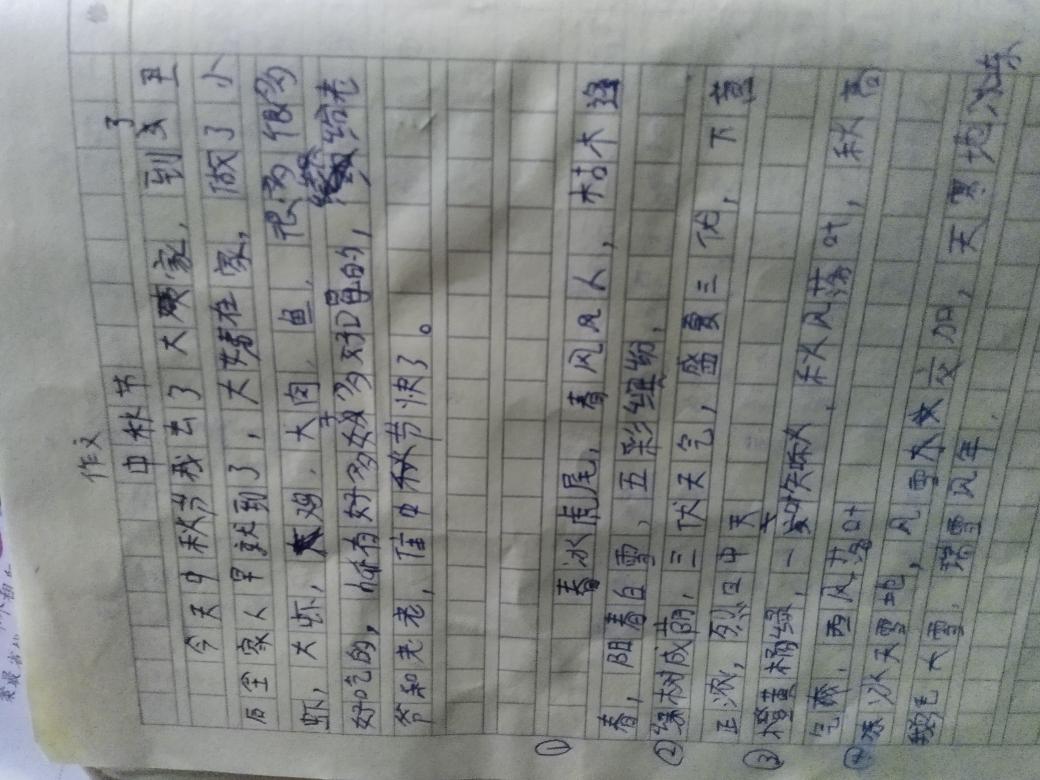 作文
中秋节
今天中秋节我去了大家，到了丑
后全家人早就到了，大爷在家，做了小
虾，大虾，大鸡，大肉，鱼，很多很多
好吃的，好多好多好喝的，给老
爷和老老，信中秋节快了。
① 春冰虎尾，春风风人，枯木逢
春，阳春白雪，五彩缤纷，
②绿树成荫，三伏天气，盛夏三伏，下
正浓，烈日中天
③橙黄桔绿，一叶知秋，秋风落叶，秋高
气爽，西风落叶
④ 冰天雪地，风雪交加，天寒地冻
大雪，瑞雪风年，